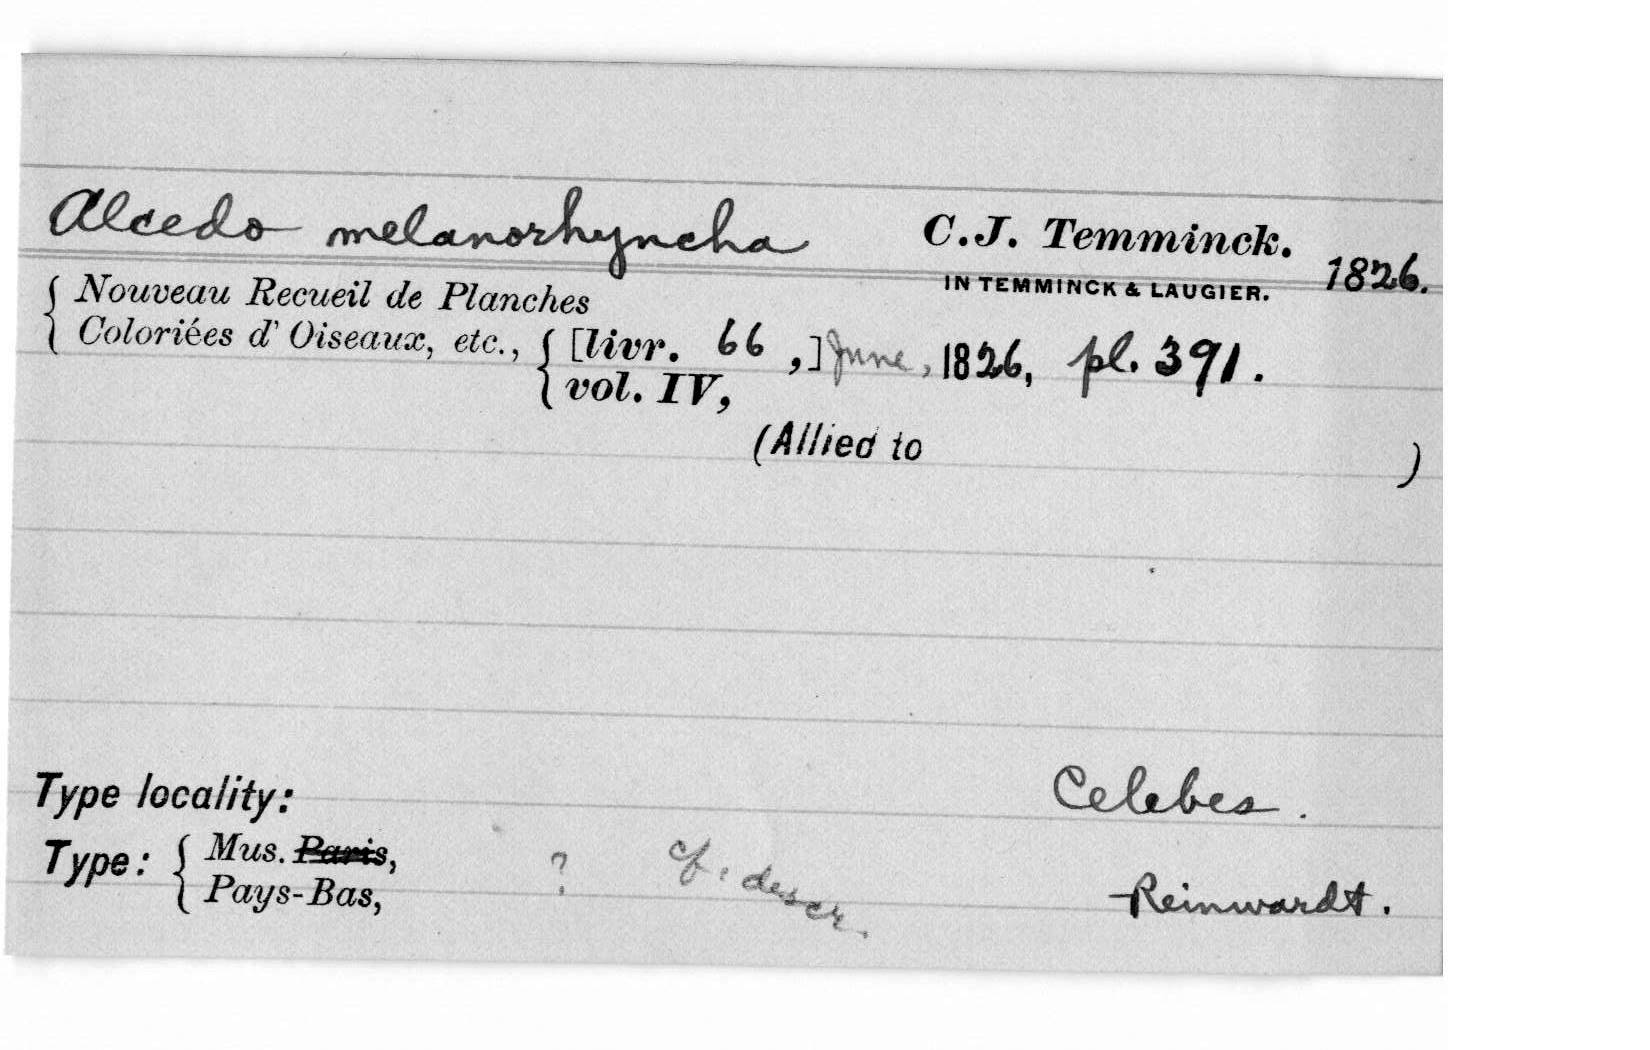 Alcedo melanorhyncha C.J. Temminck. 1826.
IN TEMMINCK & LAUGIER.
Nouveau Recueil de Planches
Coloriées d'Oiseaux, etc., [livr. 66 ,] June, 1826, pl. 391.
vol. IV,
(Allied to )
Type locality: Celebes.
Type: Mus. Paris, ? cf. descr.
Pays-Bas, Reinwardt.